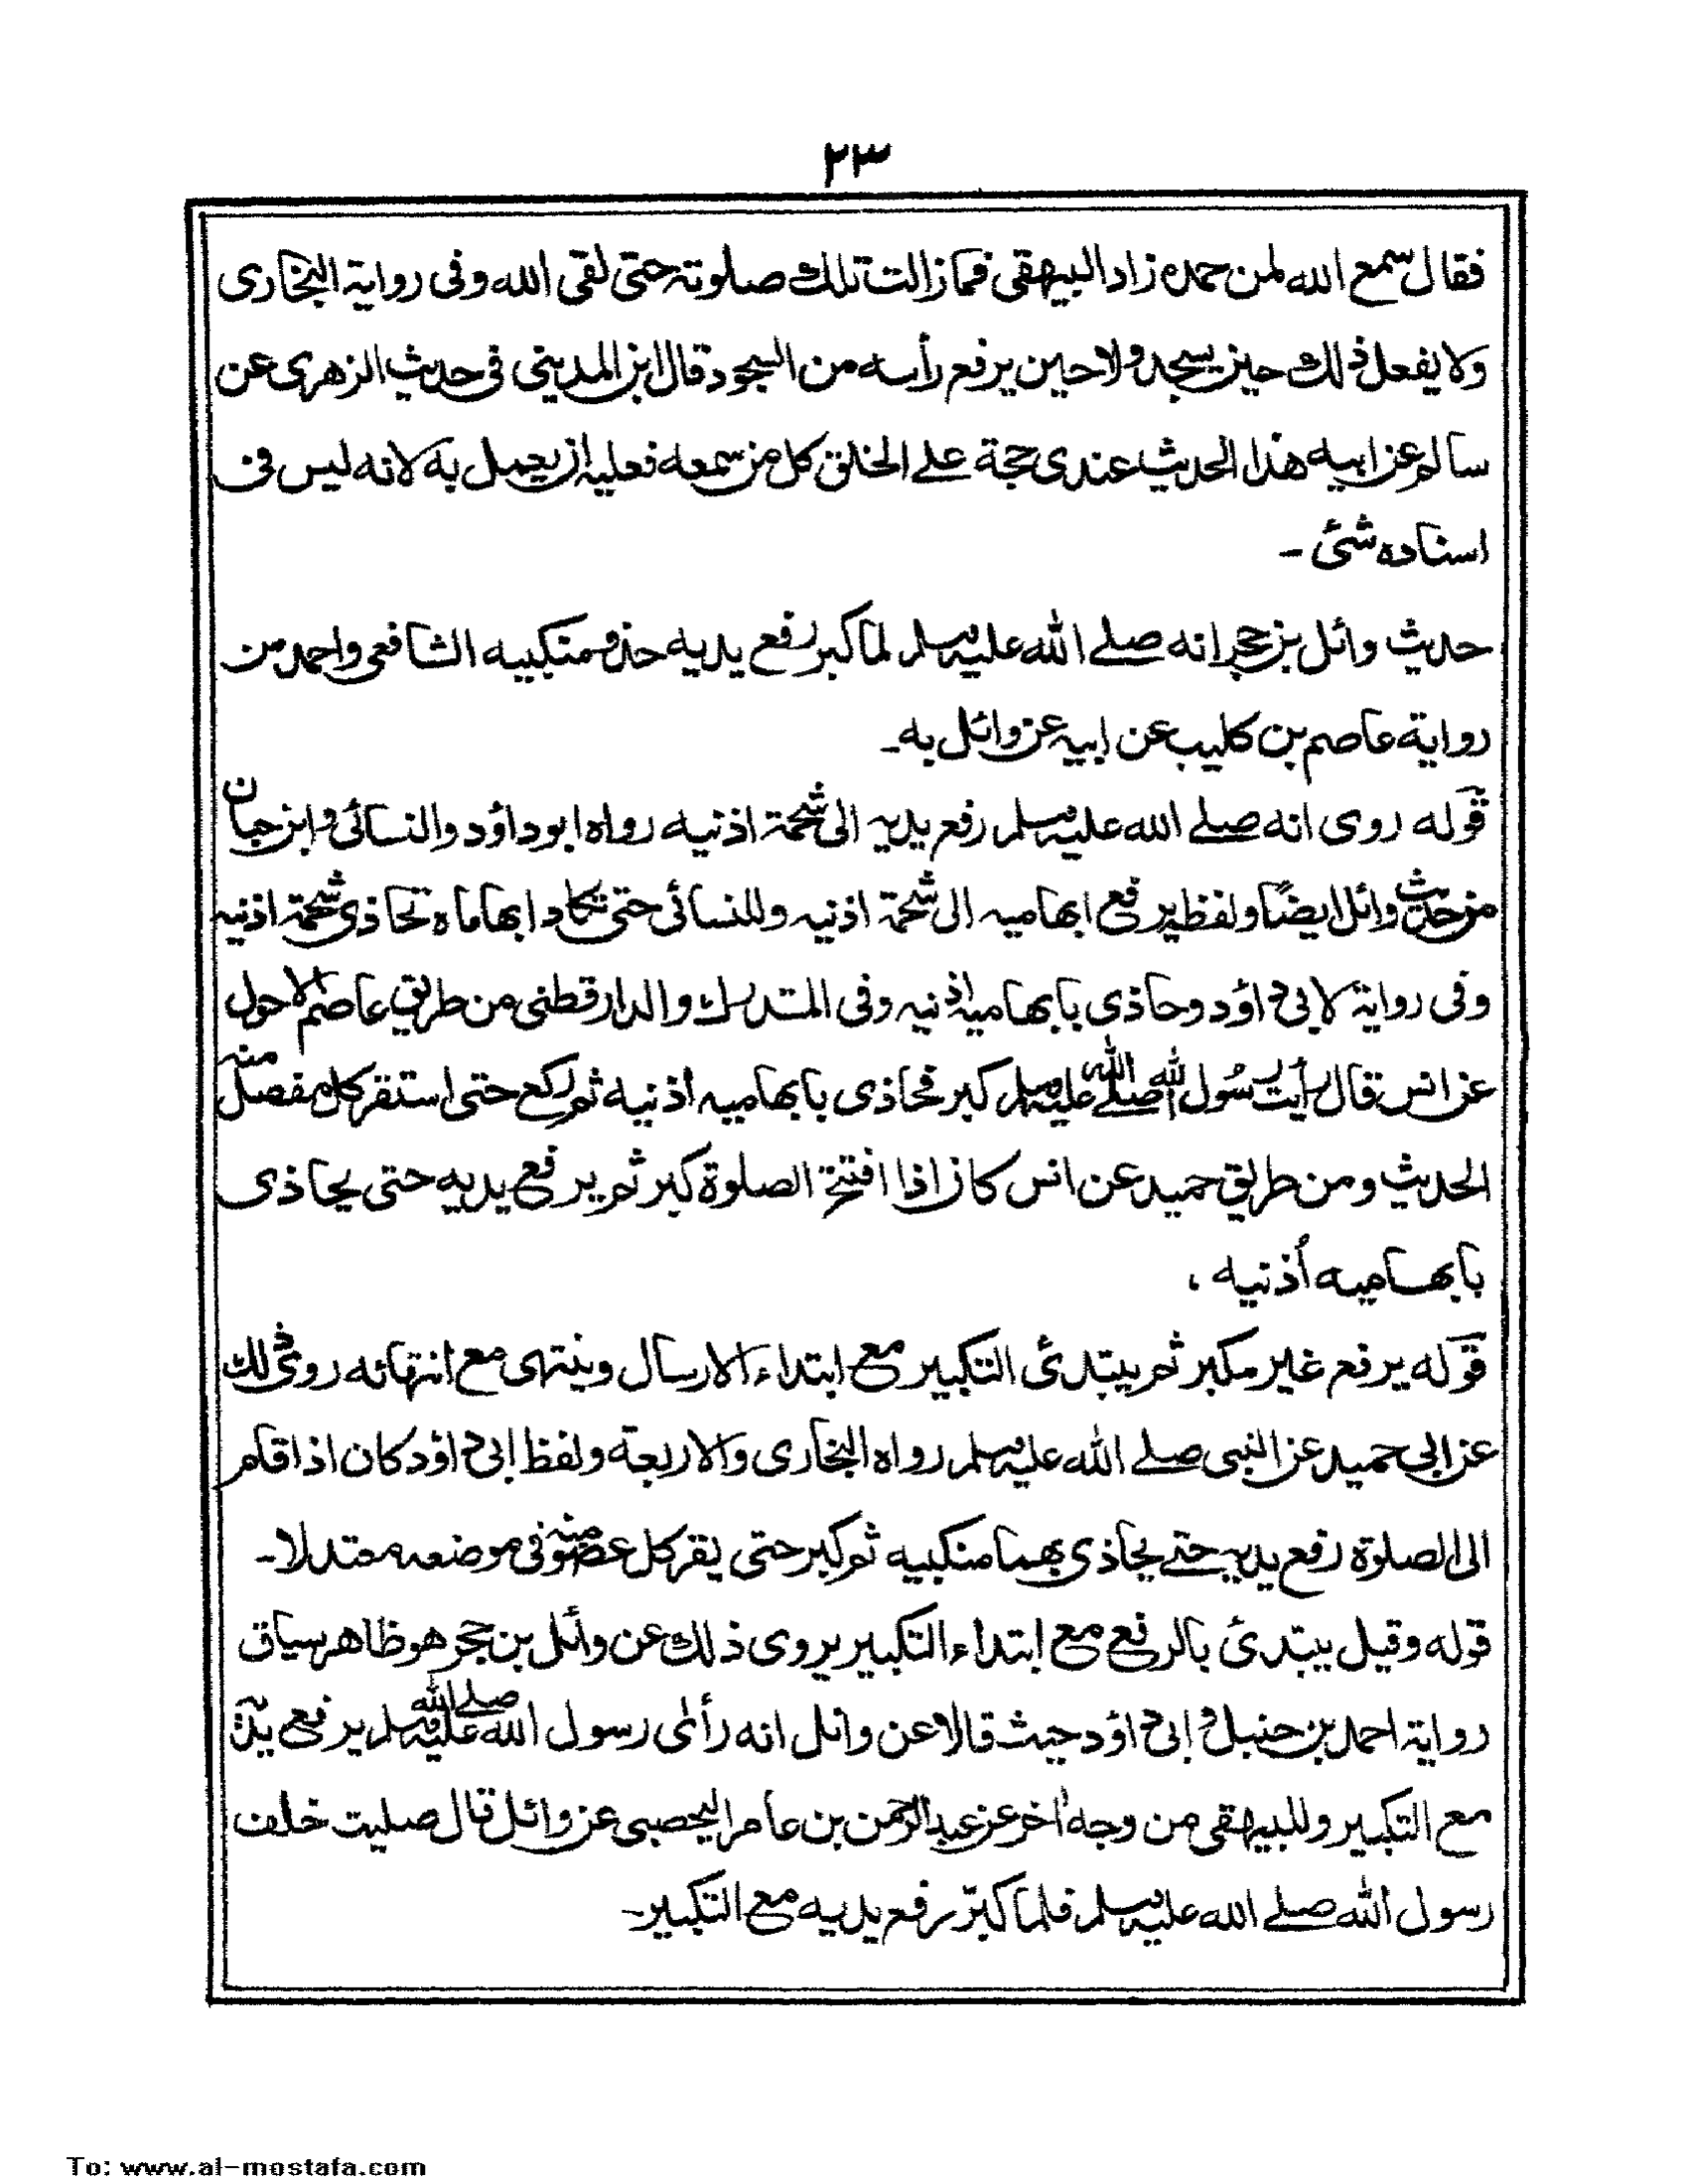 ٢٣
فقال سمع الله لمن حمده زاد البيهقى فما زالت تلك صلوته حتى لقى الله وفى رواية البخارى
ولا يفعل ذلك حين يسجد ولا حين يرفع رأسه من السجود قال ابن المدينى فى حديث الزهرى عن
سالم عن ابيه هذا الحديث عندى حجة على الخلق كل من سمعه فعليه ان يعمل به لانه ليس فى
اسناده شئ -
حديث وائل بن حجر انه صلے الله عليه وسلم لما كبر رفع يديه حذو منكبيه الشافعى واحمد من
رواية عاصم بن كليب عن ابيه عن وائل به-
قوله روى انه صلے الله عليه وسلم رفع يديه الى شحمة اذنيه رواه ابوداؤد والنسائى وابن حبان
من حديث وائل ايضًا ولفظه يرفع ابهاميه الى شحمة اذنيه وللنسائى حتى تكاد ابهاماه تحاذى شحمة اذنيه
وفى رواية لابى داؤد وحاذى بابهاميه اذنيه وفى المتدرك والدارقطنى من طريق عاصم الاحول
عن انس قال رأيت رسُول الله صلے الله عليه وسلم كبر فحاذى بابهاميه أذنيه ثم ركع حتى استقر كل مفصل منه
الحديث ومن طريق حميد عن انس كان اذا افتتح الصلوة كبر ثم يرفع يديه حتى يحاذى
بابهاميه أُذنيه ،
قوله يرفع غير مكبر ثم يبتدئ التكبير مع ابتداء الارسال وينتهى مع انتهائه روى ذلك
عن ابى حميد عن النبى صلے الله عليه وسلم رواه البخارى والاربعة ولفظ ابى داؤد كان اذا قام
الى الصلوة رفع يديه حتے يحاذى بهما منكبيه ثم كبر حتى يقر كل عضو منه فى موضعه معتدلا-
قوله وقيل يبتدئ بالرفع مع ابتداء التكبير يروى ذلك عن وائل بن حجر هو ظاهر سياق
رواية احمد بن حنبل وابى داؤد حيث قالا عن وائل انه رأى رسول الله صلے الله عليه وسلم يرفع يديه
مع التكبير وللبيهقى من وجه اٰخر عن عبدالرحمن بن عامر اليحصبى عن وائل قال صليت خلف
رسول الله صلے الله عليه وسلم فلما كبّر رفع يديه مع التكبير-
To: www.al-mostafa.com